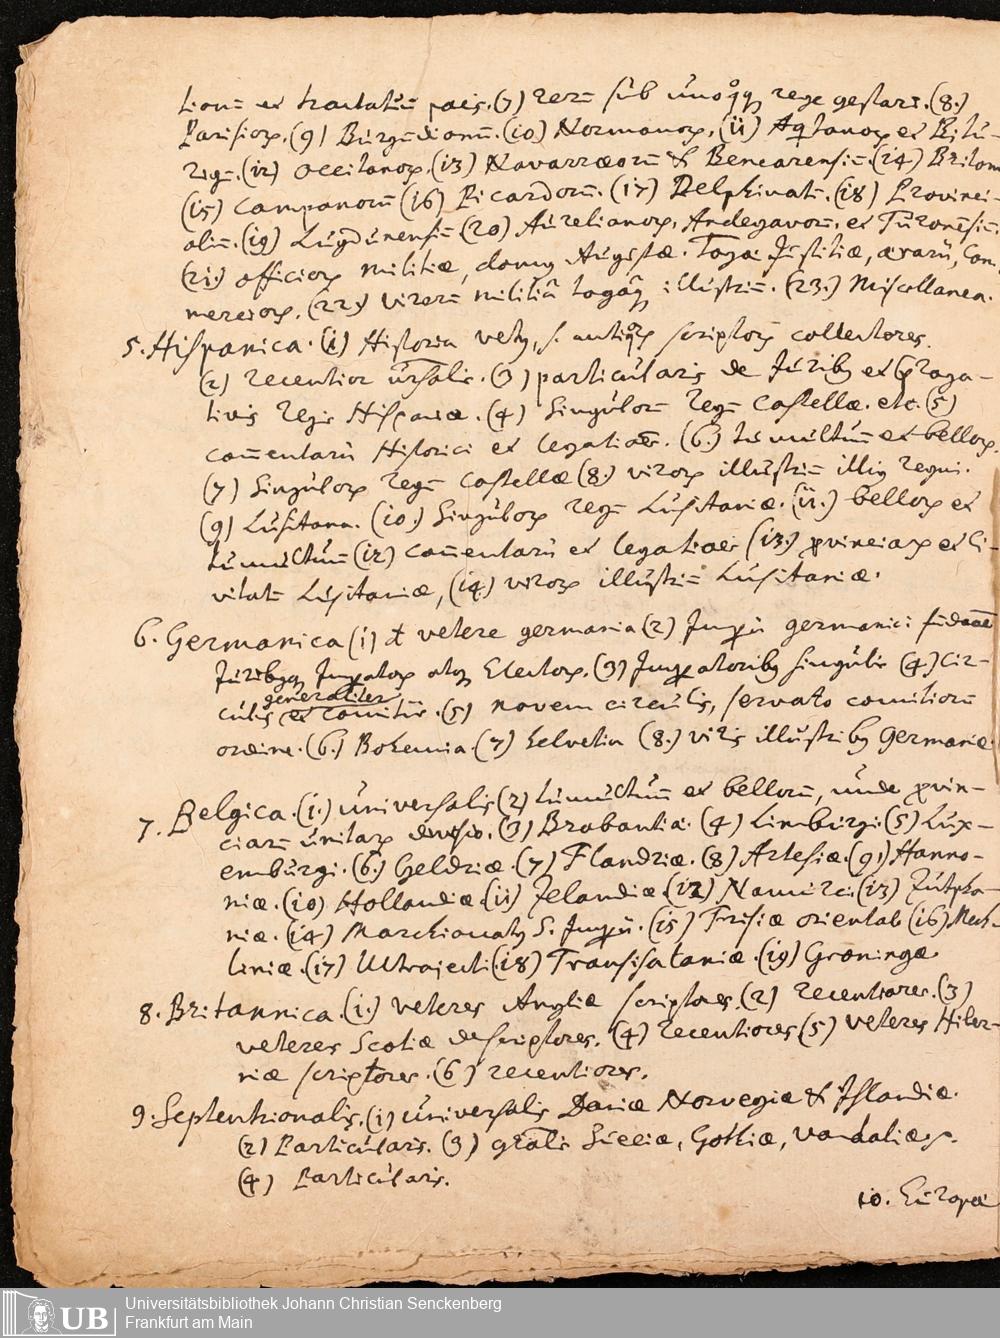 tionū et tractatuū pacis. (7) rerū sub unoq̃q; rege gestarū. (8.)
Parisiorꝝ. (9) Burgūdionū. (10) Normanorꝝ. (11) Aqitanorꝝ et Bitu-
rigū. (12) Occitanorꝝ. (13) Navarræorū & Bencarensiū. (14) Briton
(15) Campanorū (16) Picardorū. (17) Delphinatū. (18) Provinci-
aliū. (19) Lugdunensiū (20) Aurelianorꝝ, Andegavorū. et Turonēsiū.
(21.) officiorꝝ militiæ, domꝯ Augustæ. Togæ Justitiæ, ærarii, Com
merciorꝝ. (22.) virorū militiâ togâq; illustriū. (23.) Miscellanea.
5. Hispanica. (1) Historiæ vetꝯ, s. antiqꝝ scriptorꝝ collectores.
(2) recentior ūrsalis. (3) particularis de Juribꝯ et p̱roga-
tivis regis Hispaniæ. (4) Singulorū regū Castellæ. etc. (5)
com̄entarii Historici et legatioēs. (6.) tumultuū et bellorꝝ.
(7) Singulorꝝ regū Castellæ (8.) virorꝝ illustriū illiꝯ regni.
(9) Lusitana. (10.) Singulorꝝ regū Lusitaniæ. (11.) bellorꝝ et
tumultuū (12) com̄entarii et legatioēs (13.) ꝓvinciarꝝ et Ci-
vitatū Lusitaniæ, (14.) virorꝝ illustriū Lusitaniæ.
6. Germanica (1) vetere germania (2) Imꝑii germanici
Juribꝯq; Imꝑatorꝝ atq; Electorꝝ. (3) Imꝑatoribꝯ singulis (4) Cir-
generaliter
culis et comitiis. (5) novem circulis, servato comitiorū
ordine. (6.) Bohemia. (7) helvetia (8.) viris illustribꝯ Germaniæ.
7. Belgica. (1.) universalis (2) tumultuū et bellorū, unde ꝓvin-
ciarū unitarꝝ divisio. (3) Brabantiæ. (4) Limburgi. (5) Lux-
emburgi. (6.) Geldriæ. (7) Flandriæ. (8) Artesiæ. (9) Hanno-
niæ. (10) Hollandiæ. (11) Zelandiæ. (12) Namurci. (13) Zutpha-
niæ. (14) Marchionatꝯ S. Imꝑii. (15) Frisiæ oriental (16) Mech
liniæ. (17) Ultrajecti. (18) Transisalaniæ. (19) Groningæ.
8. Britannica. (1.) veteres Angliæ scriptores. (2) recentiores. (3)
veteres Scotiæ descriptores. (4) recentiores (5) veteres Hiber-
niæ scriptores. (6) recentiores.
9. Septentrionalis. (1) universalis Daniæ Norvegiæ & Islandiæ.
(2) Particularis. (3) gr̄alis Sueciæ, Gothiæ, Vandaliæqꝫ.
(4) Particularis.
10. Europæ
Universitätsbibliothek Johann Christian Senckenberg
Frankfurt am Main
UB